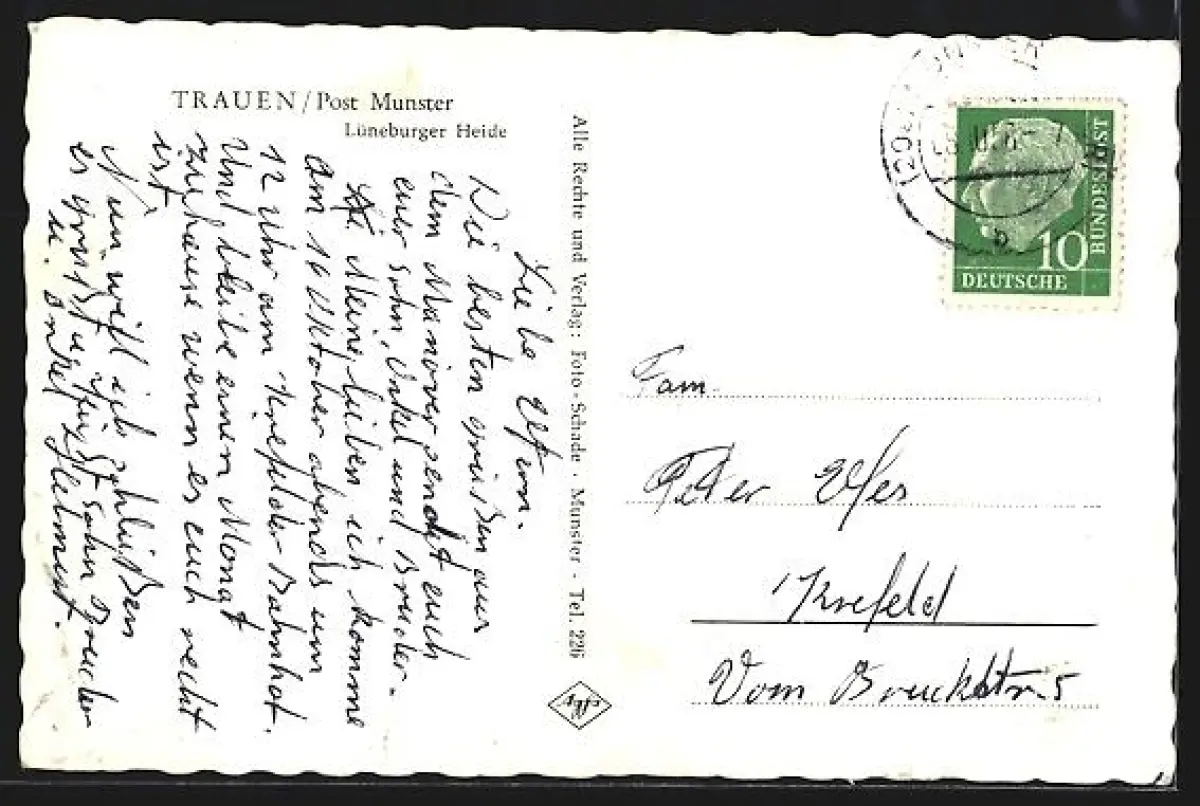 TRAUEN/Post Munster
Lüneburger Heide
Liebe Eltern.
Die besten grüßen aus
dem Manöver sendet euch
euer sohn, onkel und Bruder.
Meine lieben ich komme
am 16 Oktober abends um
12 Uhr am Krefelder Bahnhof.
Und bleibe einen Monat
zuhause wenn es euch recht
ist
Nun will ich schließen
es grüßt Sohn Bruder
u. onkel Helmut.
Alle Rechte und Verlag: Foto-Schade · Munster - Tel. 226
Agfa
10
DEUTSCHE
BUNDESPOST
b
Fam.
Peter
Krefeld
Vom Bruckstr. 5